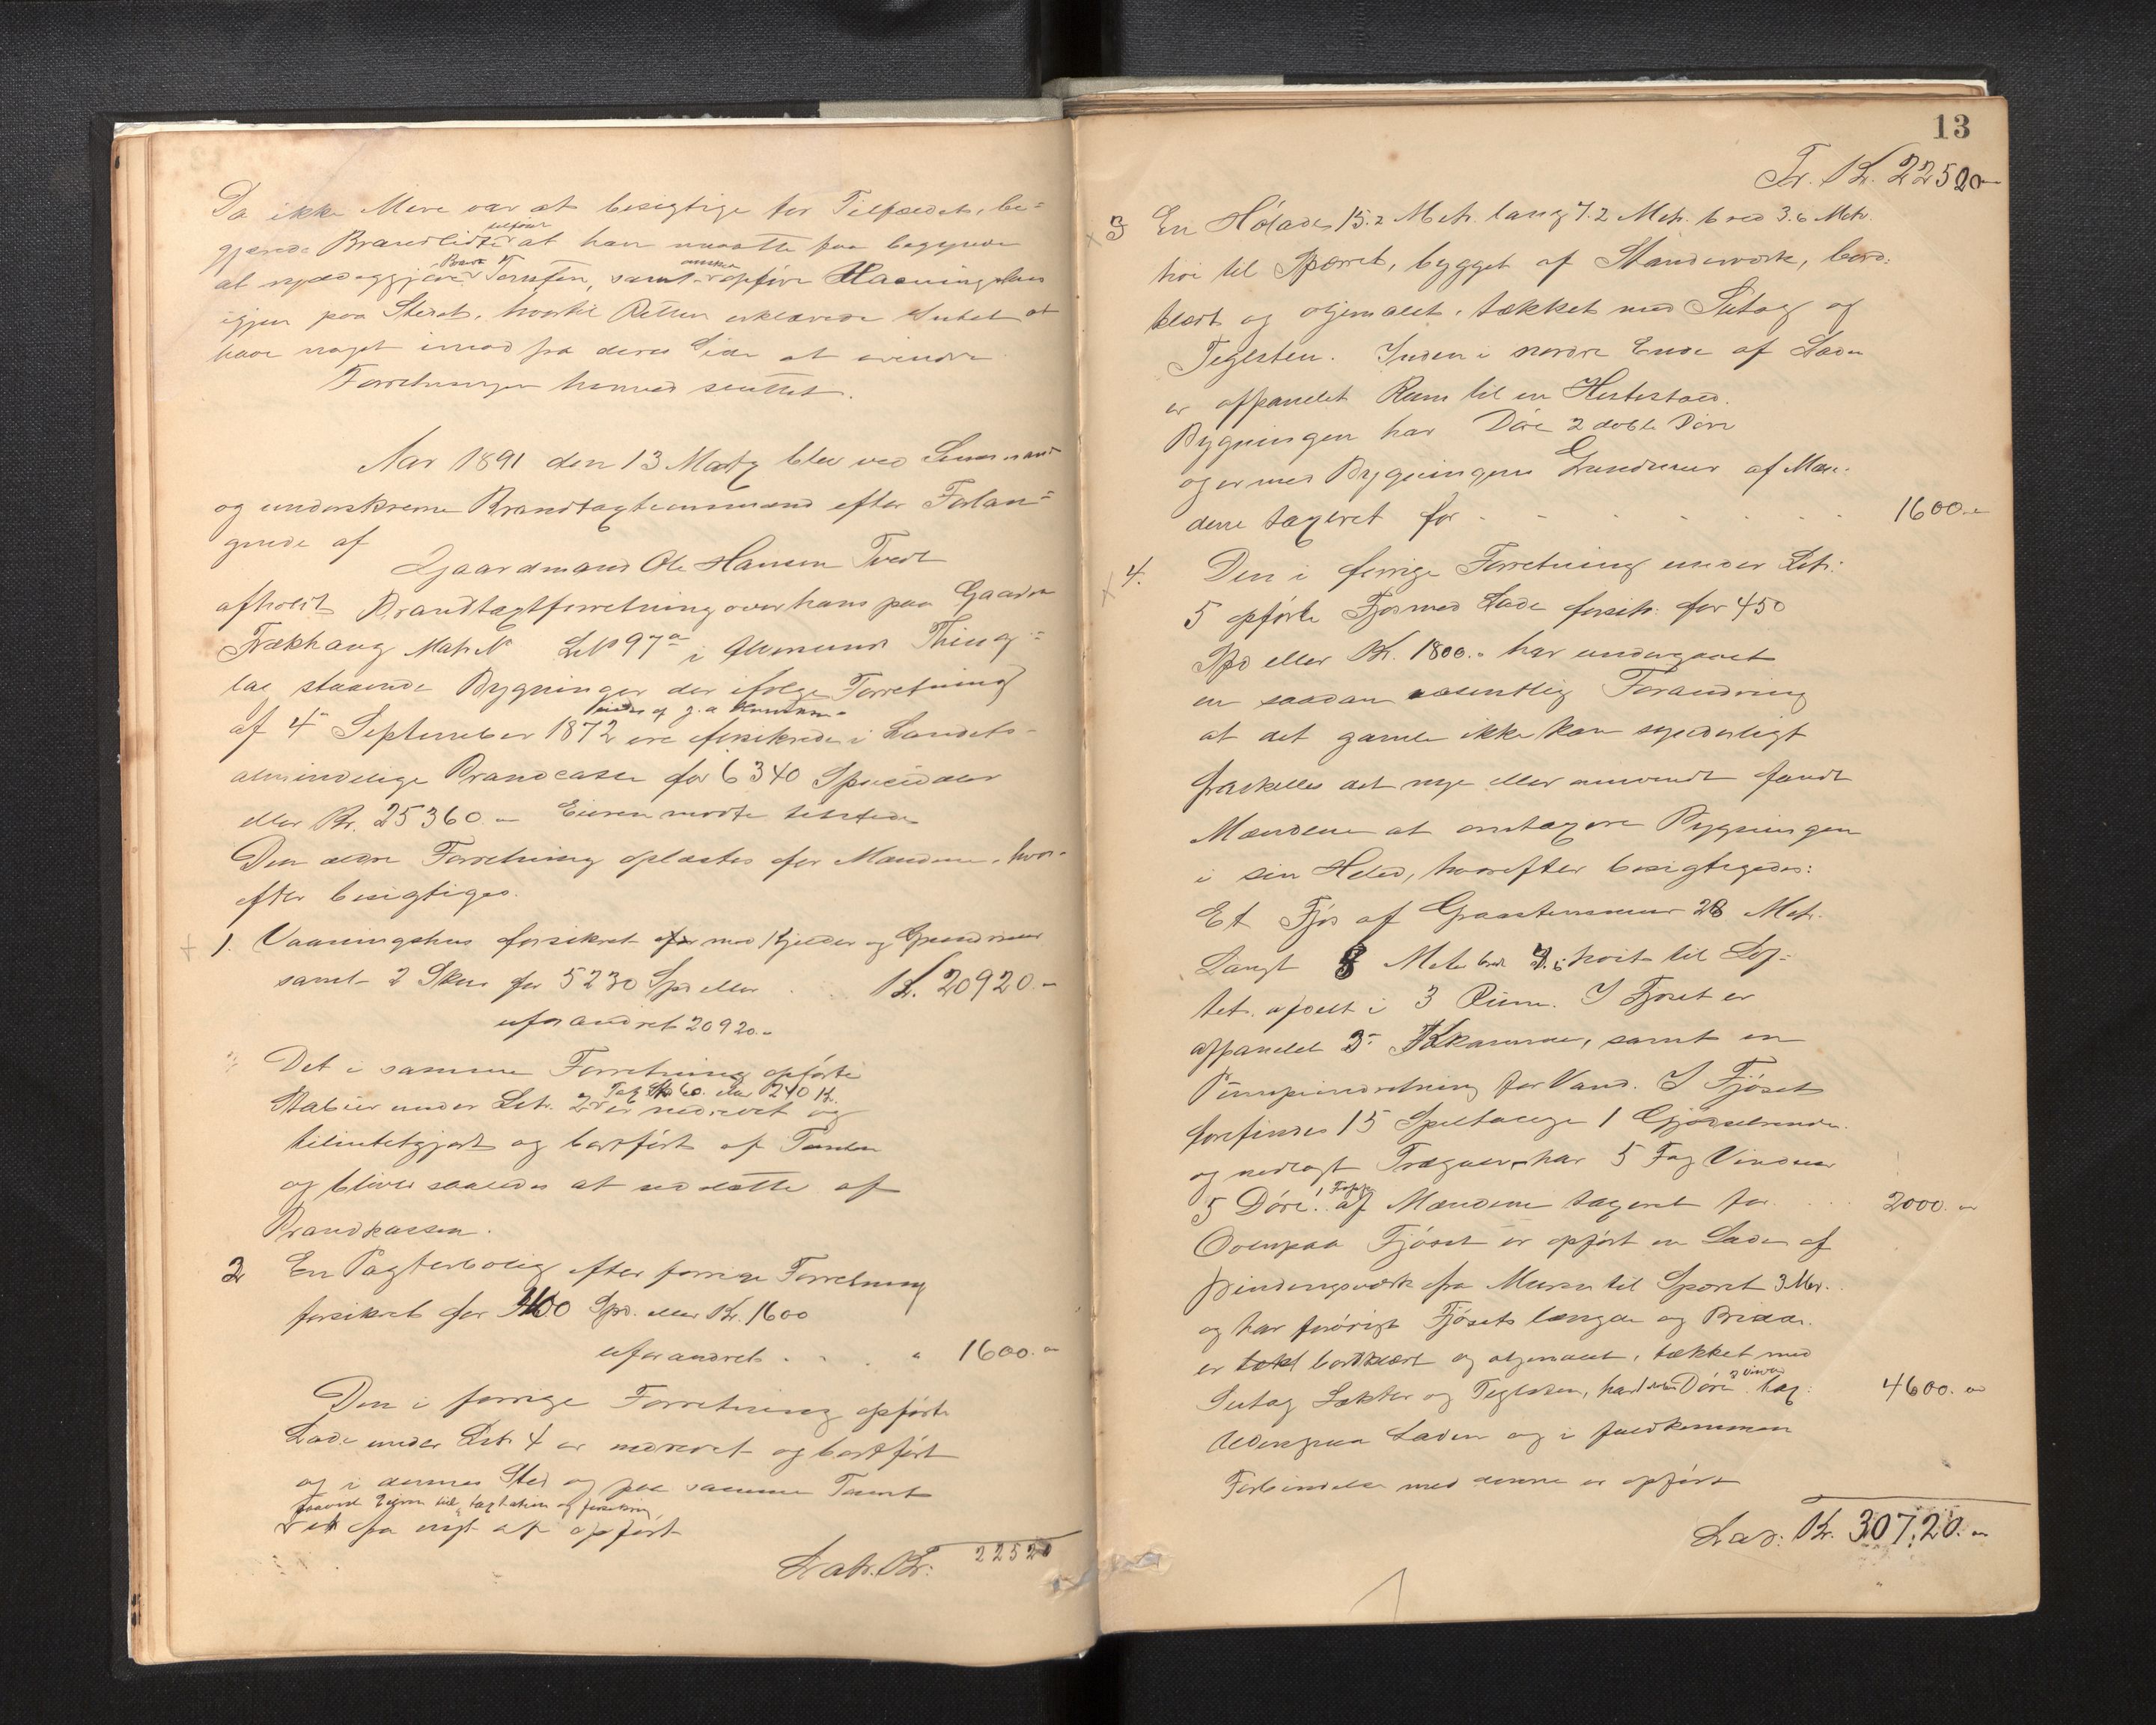 Da ikke Mere var at besigtige for Tilfældet, be-
gjærede Brandlidte tilføiet at han maatte faa begynde
at nyææggjøre Tomten, samt ønsker opføre Vaaningshus
igjen paa Stedet, hvortil Retten erklærede Intet at
have noget imod fra deres Side at erindre
Forretningen hermed sluttet.
Aar 1891 den 13 Marts blev ved Lensmand
og underskrevne Brandtaxtmænd efter Forlan-
gende af
Gaardmand Ole Hansen Tvedt
afholdt Brandtaxtforretning over hans paa Gaarden
Frækhaug Matr. No LNo 97a i Alversund Thing-
lag staaende Bygninger der ifølge Forretning
af 4de September 1872 ere forsikrede i Landets
almindelige Brandcasse for 6340 Speciedaler
eller Kr. 25360.- Eieren mødte tilstede
Den ældre Forretning oplæstes for Mændene, hvor-
efter besigtiges.
1. Vaaningshus forsikret med Kjelder og Grundmur
samt 2 Skur for 5230 Spd eller Kr. 20920.-
uforandret 20920.-
Det i samme Forretning opførte
Stabur under Litr. 2 Tax Spd 60 eller 240 Kr. er nedrevet og
tilintetgjort og bortført af Tomten
og bliver saaledes at udslette af
Brandkassen.
2 En Pagterbolig efter forrige Forretning
forsikret for 400 Spd. eller Kr. 1600
uforandret . . . " 1600.-
Den i forrige Forretning opførte
Lade under Litr 4 er nedrevet og bortført
og i dennes Sted og paa samme Tomt
Eieren til taxtation og forsikring
er fra nyt af opført
Latr. Kr. 22520
13
Tr. Kr. 22520-
3 En Høladе 15.2 Metr. lang 7.2 Metr. bred 3.6 Metr.
høi til Spærret, bygget af Standeværk, bord-
klædt og oljemalet, tækket med Sutag og
Teglsten. Inden i nordre Ende af Laden
er afpanelet Rum til en Hestestald.
Bygningen har Døre 2 doble Døre
og er med Bygningens Grundmur af Mæn-
dene taxeret for - - - - - 1600.-
4. Den i forrige Forretning under Litr.
5 opførte Fjos med Lade forsikr. for 450
Spd eller Kr. 1800.- har undergaaet
en saadan væsentlig Forandring
at det gamle ikke kan synderligt
fraskilles det nye eller anvendt fandt
Mændene at omtaxere Bygningen
i sin Helhed, hvorefter besigtigedes:
Et Fjøs af Graastensmur 28 Metr.
Langt 8 Metr bred høit til Lof-
tet, afdelt i 3 Rum. I Fjøset er
afpanelet 3 samt en
Pumpeindretning for Vand. I Fjøset
forefindes 15 Spiltouge 1 Gjødselrende
og nedlagt Trægulv, har 5 Fag Vinduer
5 Døre. af Mændene taxeret for . . . 2000.-
Ovenpaa Fjøset er opført en Lade af
Bindingsværk fra Muren til Sparret 3 Metr.
og har forøvrigt Fjøsets længde og Bredde.
er bordklædt og oljemalet, tækket med
Sutag Lækter og Teglsten, har Døre tax: 4600.-
Udenpaa Laden og i fuldkommen
Forbindelse med denne er opført
Lad: Kr. 30720.-